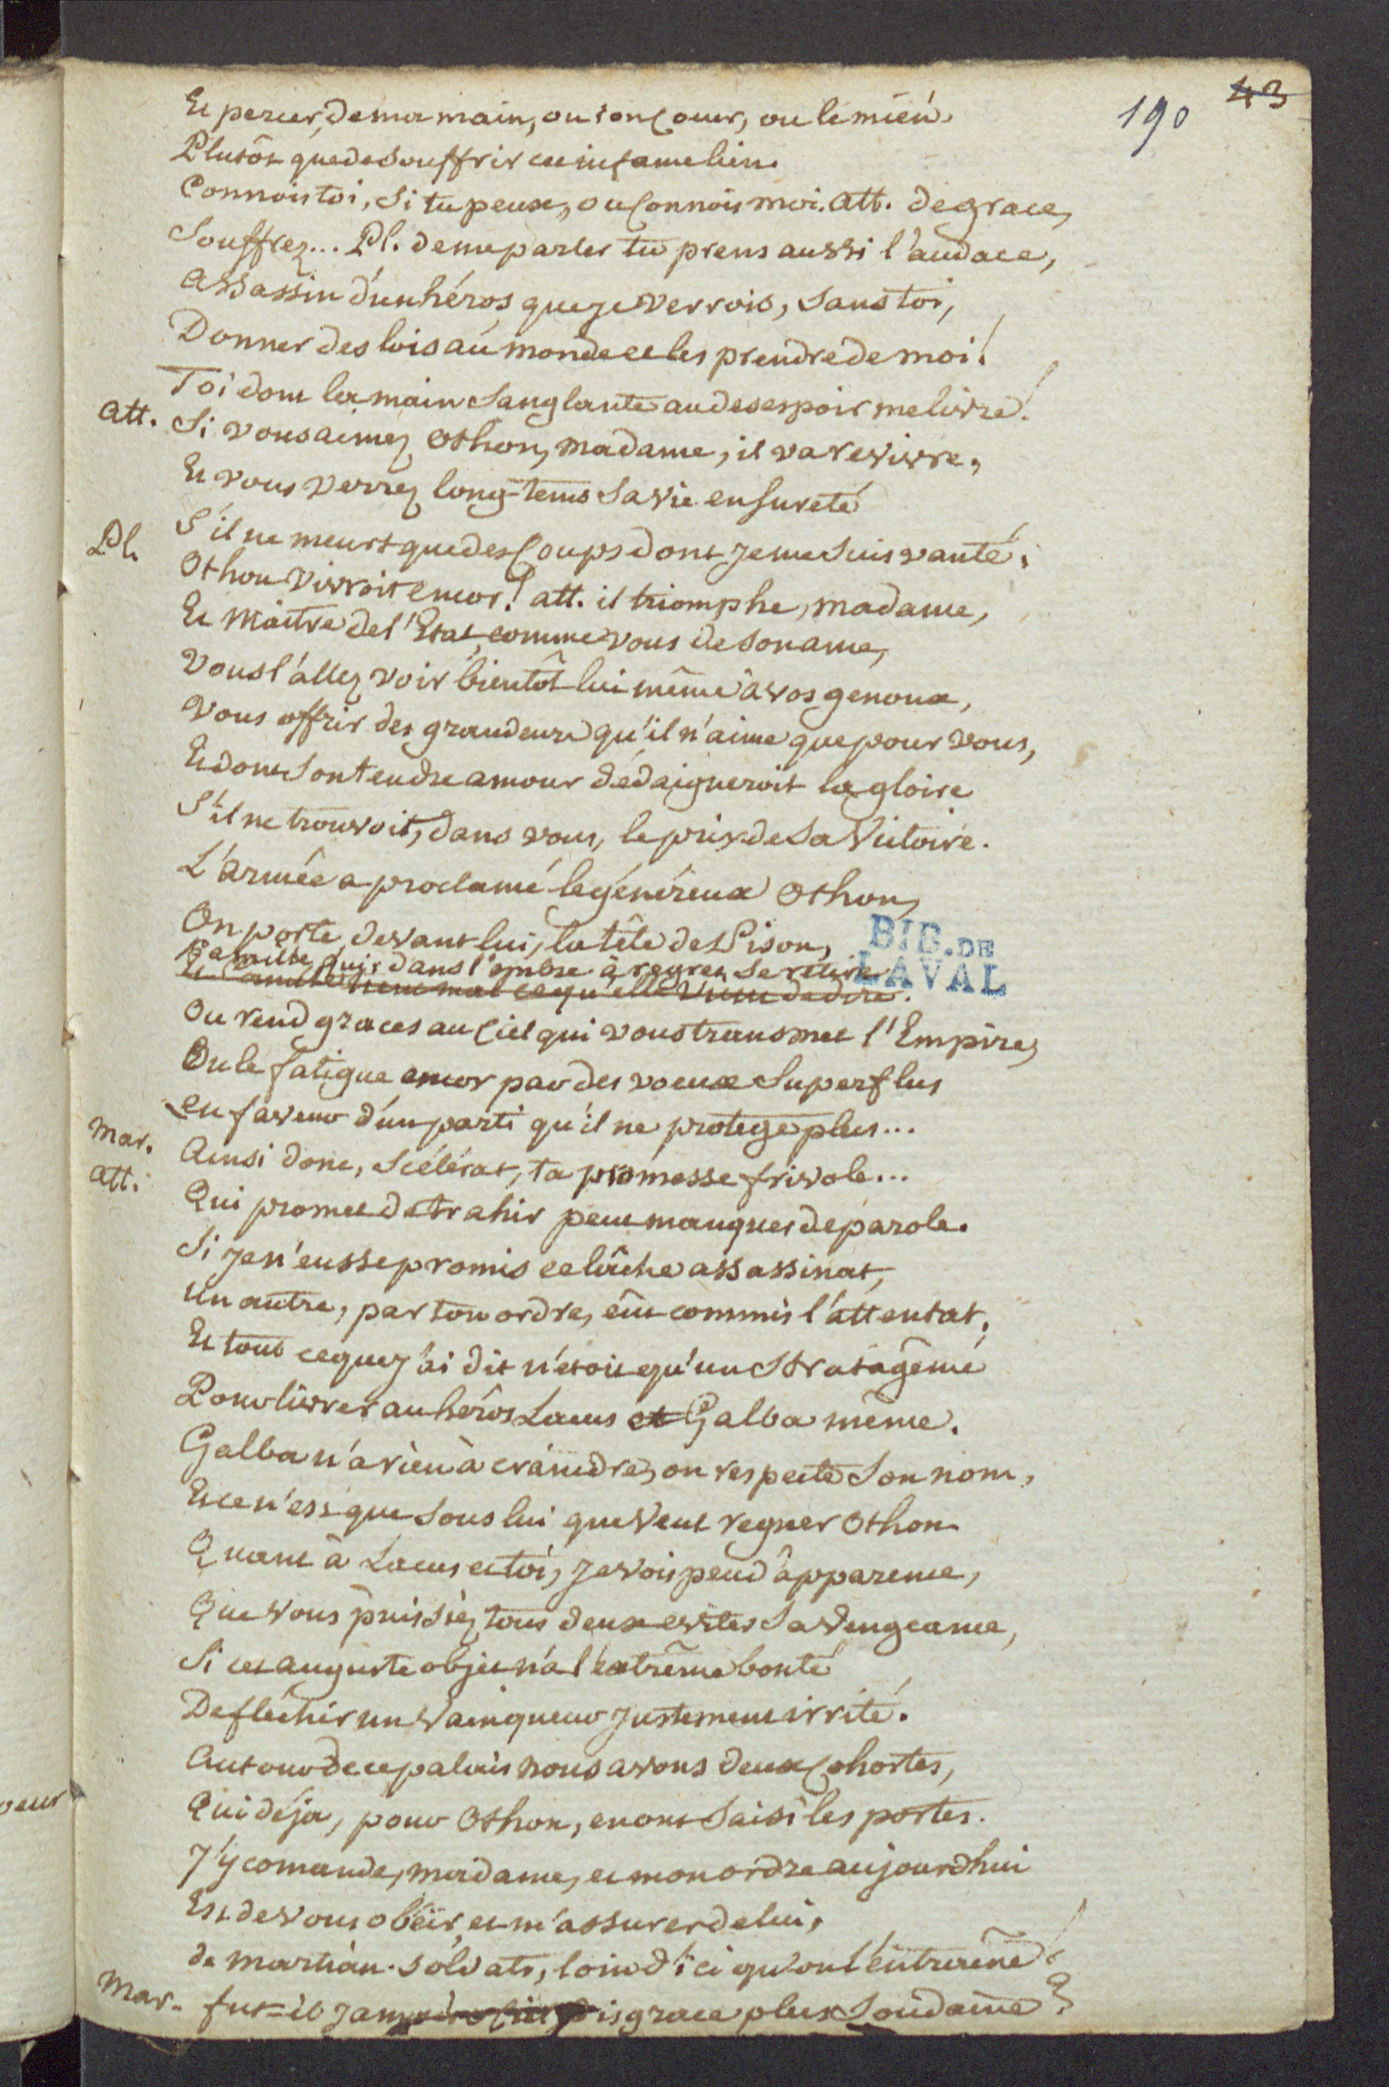 190 43
Et percer, de ma main, ou son Coeur, ou le mien.
Plutôt que de souffrir cet infame lien.
Connois toi, si tu peux, ou Connois moi. Att. de grace,
Souffrez... Pl. de me parler tu prens aussi l'audace,
Assassin d'un héros que je verrois, sans toi,
Donner des lois au monde et les prendre de moi!
Toi dont la main sanglante au desespoir me livre!
Att. Si vous aimez Othon, madame, il va revivre,
Et vous verrez long-tems sa vie en sureté
S'il ne meurt que des Coups dont je me suis vanté.
Pl. Othon vivroit encor! att. il triomphe, madame,
Et maitre de l'Etat, comme vous de son ame,
Vous l'allez voir bientôt lui même à vos genoux,
Vous offrir des grandeurs qu'il n'aime que pour vous,
Et dont son tendre amour dédaigneroit la gloire
S'il ne trouvoit, dans vous, le prix de sa Victoire.
L'armée a proclamé le généreux Othon,
On porte, devant lui, la tête de Pison,
Camille, qui, dans l'ombre à regret se retire
Et Camille tient mal ce qu'elle vient de dire.
BIB. DE
LAVAL
Ou rend graces au Ciel qui vous transmet l'Empire,
Ou le fatigue encor par des voeux superflus
en faveur d'un parti qu'il ne protege plus...
Mar. Ainsi donc, scélérat, ta promesse frivole...
Att. Qui promet de trahir peut manquer de parole.
Si je n'eusse promis ce lâche assassinat,
Un autre, par ton ordre, eût commis l'attentat,
Et tout ce que j'ai dit n'étoit qu'un stratagême
Pour livrer au héros Lacus et Galba même.
Galba n'a rien à craindre, on respecte son nom,
Et ce n'est que sous lui que veut regner Othon.
Quant à Lacus et toi, je vois peu d'apparence,
Que vous puissiez tous deux eviter sa vengeance,
Si cet auguste objet n'a l'extrême bonté
De fléchir un vainqueur justement irrité.
Autour de ce palais nous avons deux Cohortes,
Qui déja, pour Othon, en ont saisi les portes.
J'y comande, madame, et mon ordre aujourdhui
Est de vous obéir, et m'assurer de lui,
de martian. soldats, loin d'ici qu'on l'entraine!
Mar. fut-il jamais disgrace plus soudaine?
peur